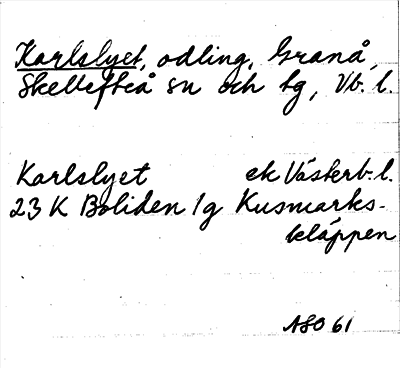 Karlslyet, odling, Granå,
Skellefteå sn och tg, Vb. l.
Karlslyet ek Västerb. l.
23 K Boliden 1g Kusmarks-
kläppen
ASO 61